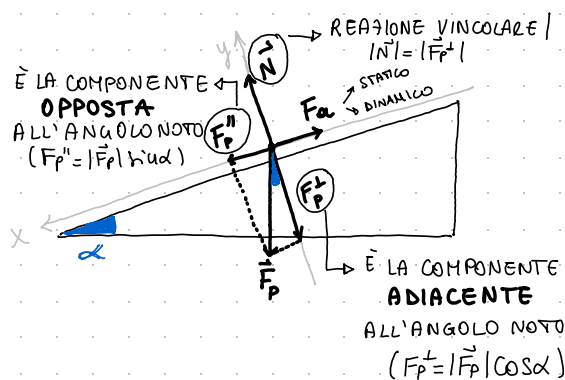 REAZIONE VINCOLARE |
|N⃗| = |F⃗p⊥|
y
N⃗
È LA COMPONENTE
OPPOSTA
ALL'ANGOLO NOTO
(Fp" = |F⃗p| sin α)
Fp"
Fa
STATICO
DINAMICO
Fp⊥
x
α
F⃗p
È LA COMPONENTE
ADIACENTE
ALL'ANGOLO NOTO
(Fp⊥ = |F⃗p| COSα)